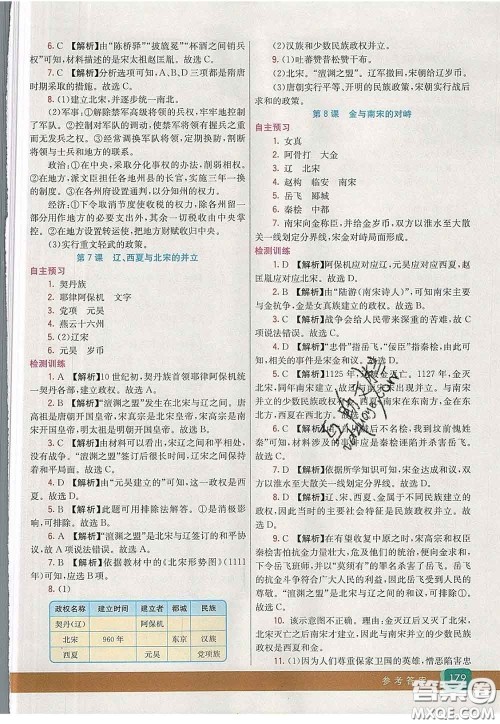 6. C 【解析】由“陈桥驿”“披旒冕”“杯酒之间销兵
权”可知,材料描述的是宋太祖赵匡胤。故选 C。
7. C 【解析】分析选项可知,A、B、D 三项都是隋唐
时期采取的措施。故选 C。
8. (1)建立北宋,并逐步统一南北。
(2)军事:①解除禁军高级将领的兵权,牢牢地控
制了军队。②控制对军队的调动,禁军将领有握兵之重
而无发兵之权。③经常调换军队将领,定期换防,切断
士兵和地方的联系。
政治:①在中央,采取分化事权的办法,削弱相
权。②在地方,派文臣担任各地州县的长官。③后来又
在各州府设置通判,以分知州的权力。
经济:①地方的赋税收入除留小部分作为地方开
支外,其余全部由中央掌控。②取消节度使收税的权
力;后来,在地方设置转运使,把地方财赋收归中央。
(3)实行重文轻武的政策。
第 7 课 辽、西夏与北宋的并立
自主预习
1. 契丹族
2. 耶律阿保机 文字
3. 党项 元昊
4. 燕云十六州
5. (2)辽
6. 元昊 岁币
检测训练
1. A 【解析】10 世纪初,契丹族首领耶律阿保机统
一契丹各部,建立政权。故选 A。
2. D 【解析】“澶渊之盟”发生在北宋与辽之间。唐
高祖是唐朝开国皇帝,宋真宗是北宋皇帝,宋高宗是南
宋开国皇帝,明太祖是明朝开国皇帝。故选 D。
3. C 【解析】由材料可以看出,宋辽之间和平相处,
“澶渊之盟”签订后很长时间里,辽宋之间保持着
和平局面。故选 C。
4. D 【解析】由“元昊建立”可知,这一政权是西
夏。故选 D。
5. B 【解析】此题可用排除法解答。①是侵略。
故排除①。故选 B。
6. A 【解析】“澶渊之盟”是北宋与辽签订的和平协
议。故 A 项说法错误。故选 A。
7. B 【解析】依据教材中的《北宋形势图》(1111
年)可知,应选 B 项。故选 B。
8. (1)
政权名称 建立时间 建立者 都城 民族
契丹(辽) 阿保机
北宋 960 年 东京 汉族
西夏 元昊 党项族
(2)汉族和少数民族政权并立。
(3)“澶渊之盟”。辽军撤回,宋朝给辽岁币。
9. (1)吐蕃赞赞松赞干布。
(2)唐朝实行开明、平等、开明的民族政策;宋朝实行战后
求和的政策。
第 8 课 金与南宋的对峙
自主预习
1. 女真
2. 阿骨打 大金
3. 辽 北宋
4. 赵构 临安 南宋
5. 岳飞 郾城
6. 秦桧 中都
7. 南宋向金称臣,并给金岁币。双方以淮水至大散
关一线划定分界线,宋金对峙局面形成。
检测训练
1. D 【解析】阿保机应对应辽,元昊应对应西夏。
故选 D。
2. D 【解析】由“陆游(南宋诗人)”可知,南宋主要
与金抗争,金是女真族建立的政权。故选 D。
3. C 【解析】战争会给人民带来深重的苦难。C 项
说法错误。故选 C。
4. D 【解析】“忠骨”指岳飞,“佞臣”指秦桧,由此可
知,相关的事件是宋金和战。故选 D。
5. C 【解析】1125 年,辽被金灭亡。1127 年,金灭
北宋,同年南宋建立,因此与北宋无关。与南宋以
淮水至大散关划定分界线的是金。故选 C。
6. C 【解析】“人从宋后少名桧,我到坟前愧姓
秦”与秦桧有关。诗句反映的是秦桧诬陷并杀害岳飞。
故选 C。
7. D 【解析】依据所学知识可知,宋金达成和议,
双方以淮水至大散关一线划定分界线。故选 D。
8. B 【解析】辽、宋、西夏、金属于不同民族建立的
政权,当时的主要社会特征是民族政权并立。故选 B。
9. A 【解析】在有望收复中原之时,宋高宗和权臣
秦桧害怕抗金力量壮大威胁自己的统治,向金求和,并
以“莫须有”的罪名杀害了岳飞。岳飞的抗金战争,
抗金斗争符合广大人民的利益,他的精神值得后人学
习。故选 A。
10. 该示意图不正确。理由:金灭辽后又灭了北宋。
北宋灭亡后南宋才建立,因此金未灭南宋,且金灭亡后
南宋还存在。
11. (1)因为人们尊重保家卫国的英雄,憎恶陷害忠
参考答案
179
答案圈
MXQE.COM